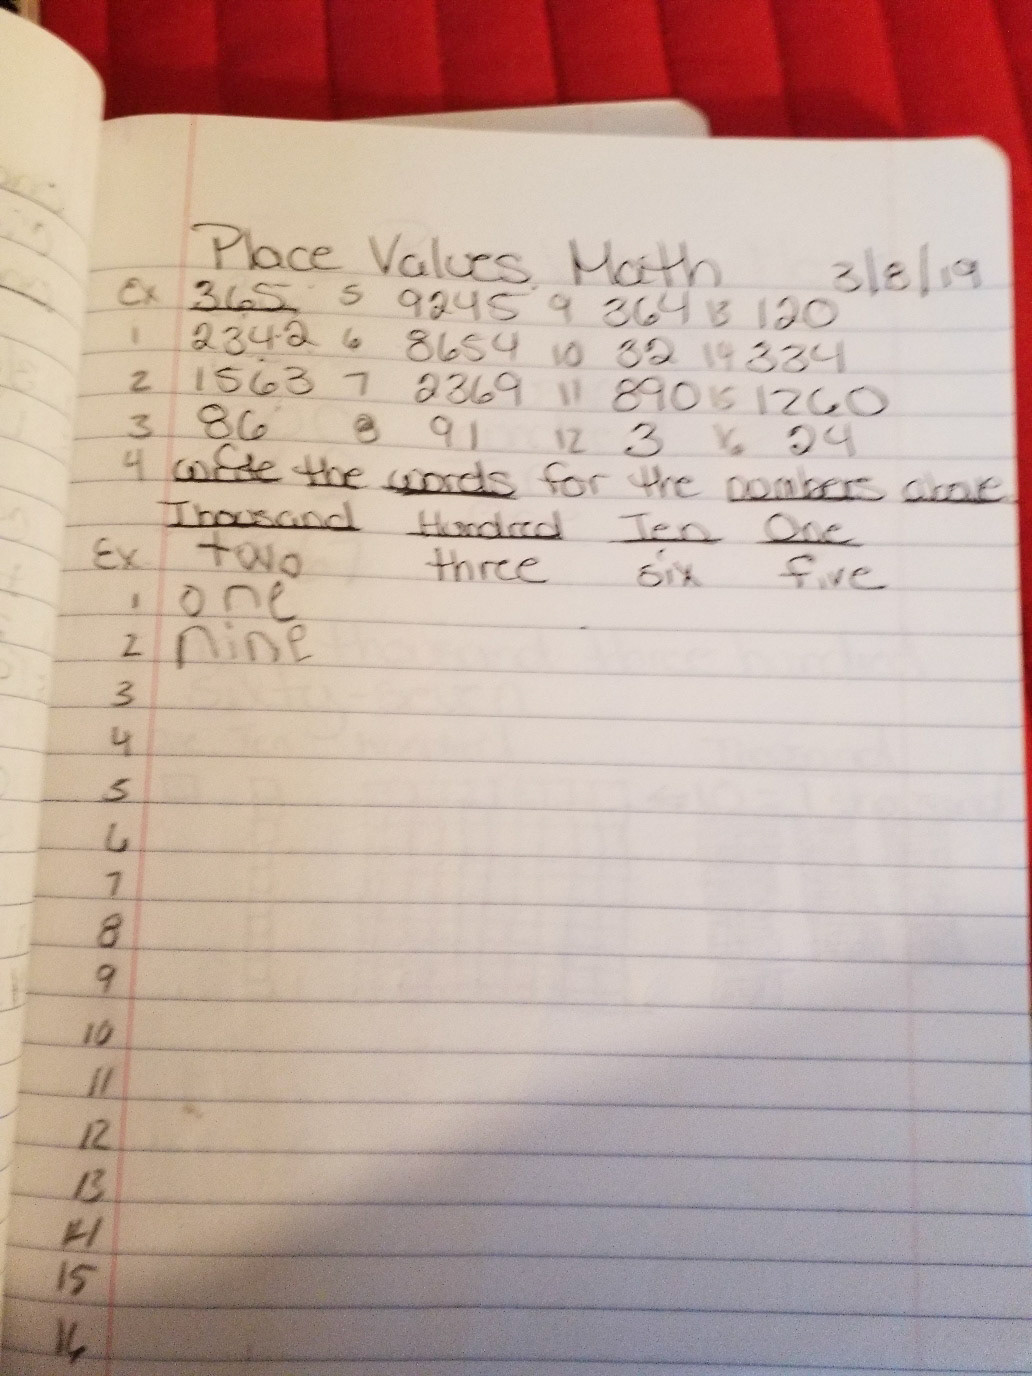 Place Values Math 3/8/19
Ex 365 5 9245 9 364 13 120
1 2342 6 8654 10 32 14 334
2 1563 7 2369 11 890 15 1260
3 86 8 91 12 3 16 24
4 write the words for the numbers above
Thousand Hundred Ten One
Ex two three six five
1 one
2 nine
3
4
5
6
7
8
9
10
11
12
13
14
15
16